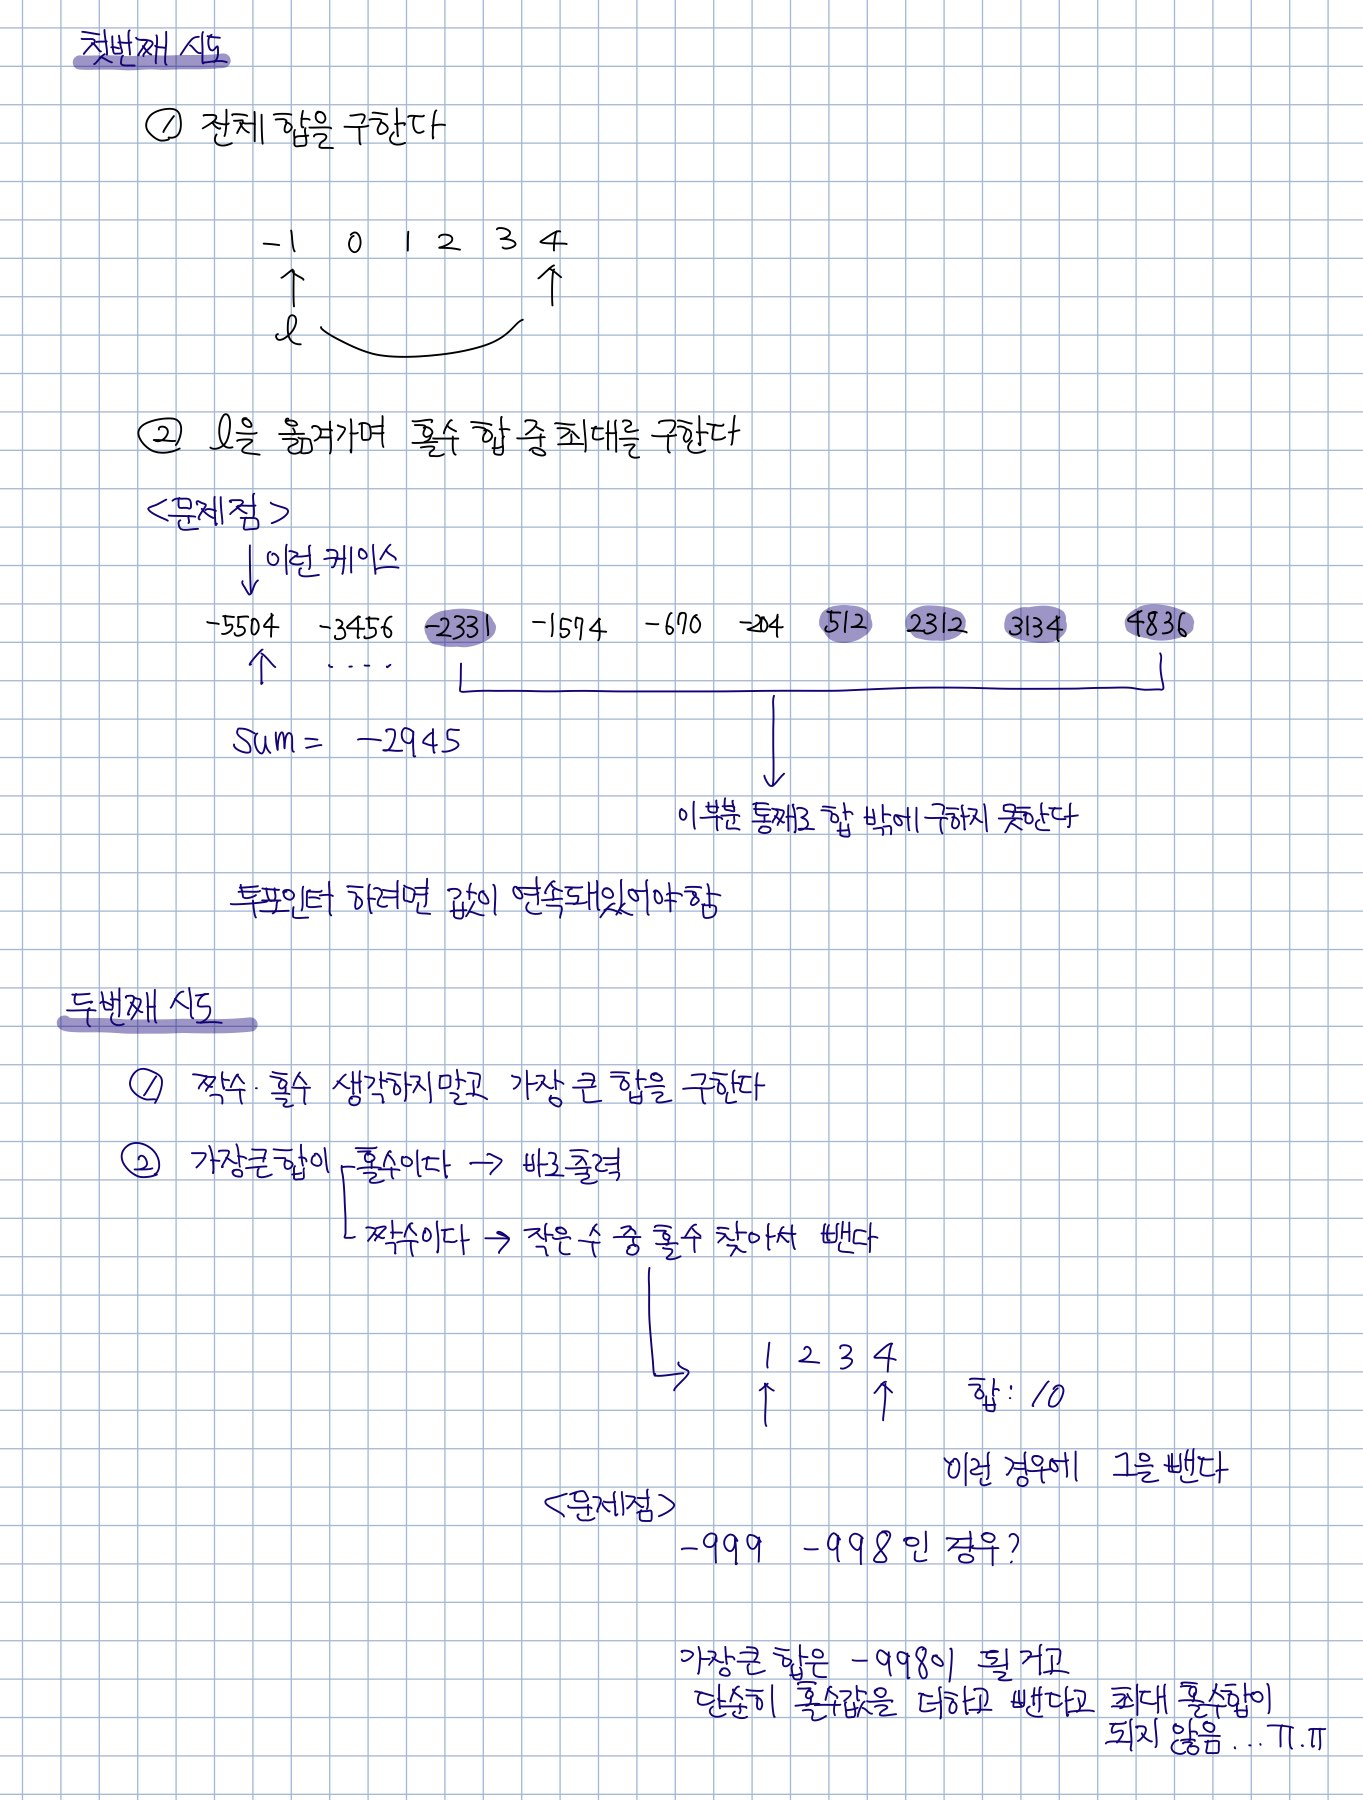 첫번째 시도
① 전체 합을 구한다
-1 0 1 2 3 4
l
② l을 옮겨가며 홀수 합 중 최대를 구한다
<문제점>
이런 케이스
-5504 -3456 -2331 -1574 -670 -204 512 2312 3134 4836
....
Sum = -2945
이 부분 통째로 합 밖에 구하지 못한다
투포인터 하려면 값이 연속돼있어야 함
두번째 시도
① 짝수·홀수 생각하지말고 가장 큰 합을 구한다
② 가장큰합이 홀수이다 → 바로출력
짝수이다 → 작은 수 중 홀수 찾아서 뺀다
1 2 3 4
합: 10
이런 경우에 1을 뺀다
<문제점>
-999 -998인 경우?
가장큰 합은 -998이 될 거고
단순히 홀수값을 더하고 뺀다고 최대 홀수합이
되지 않음... ㅠ.ㅠ